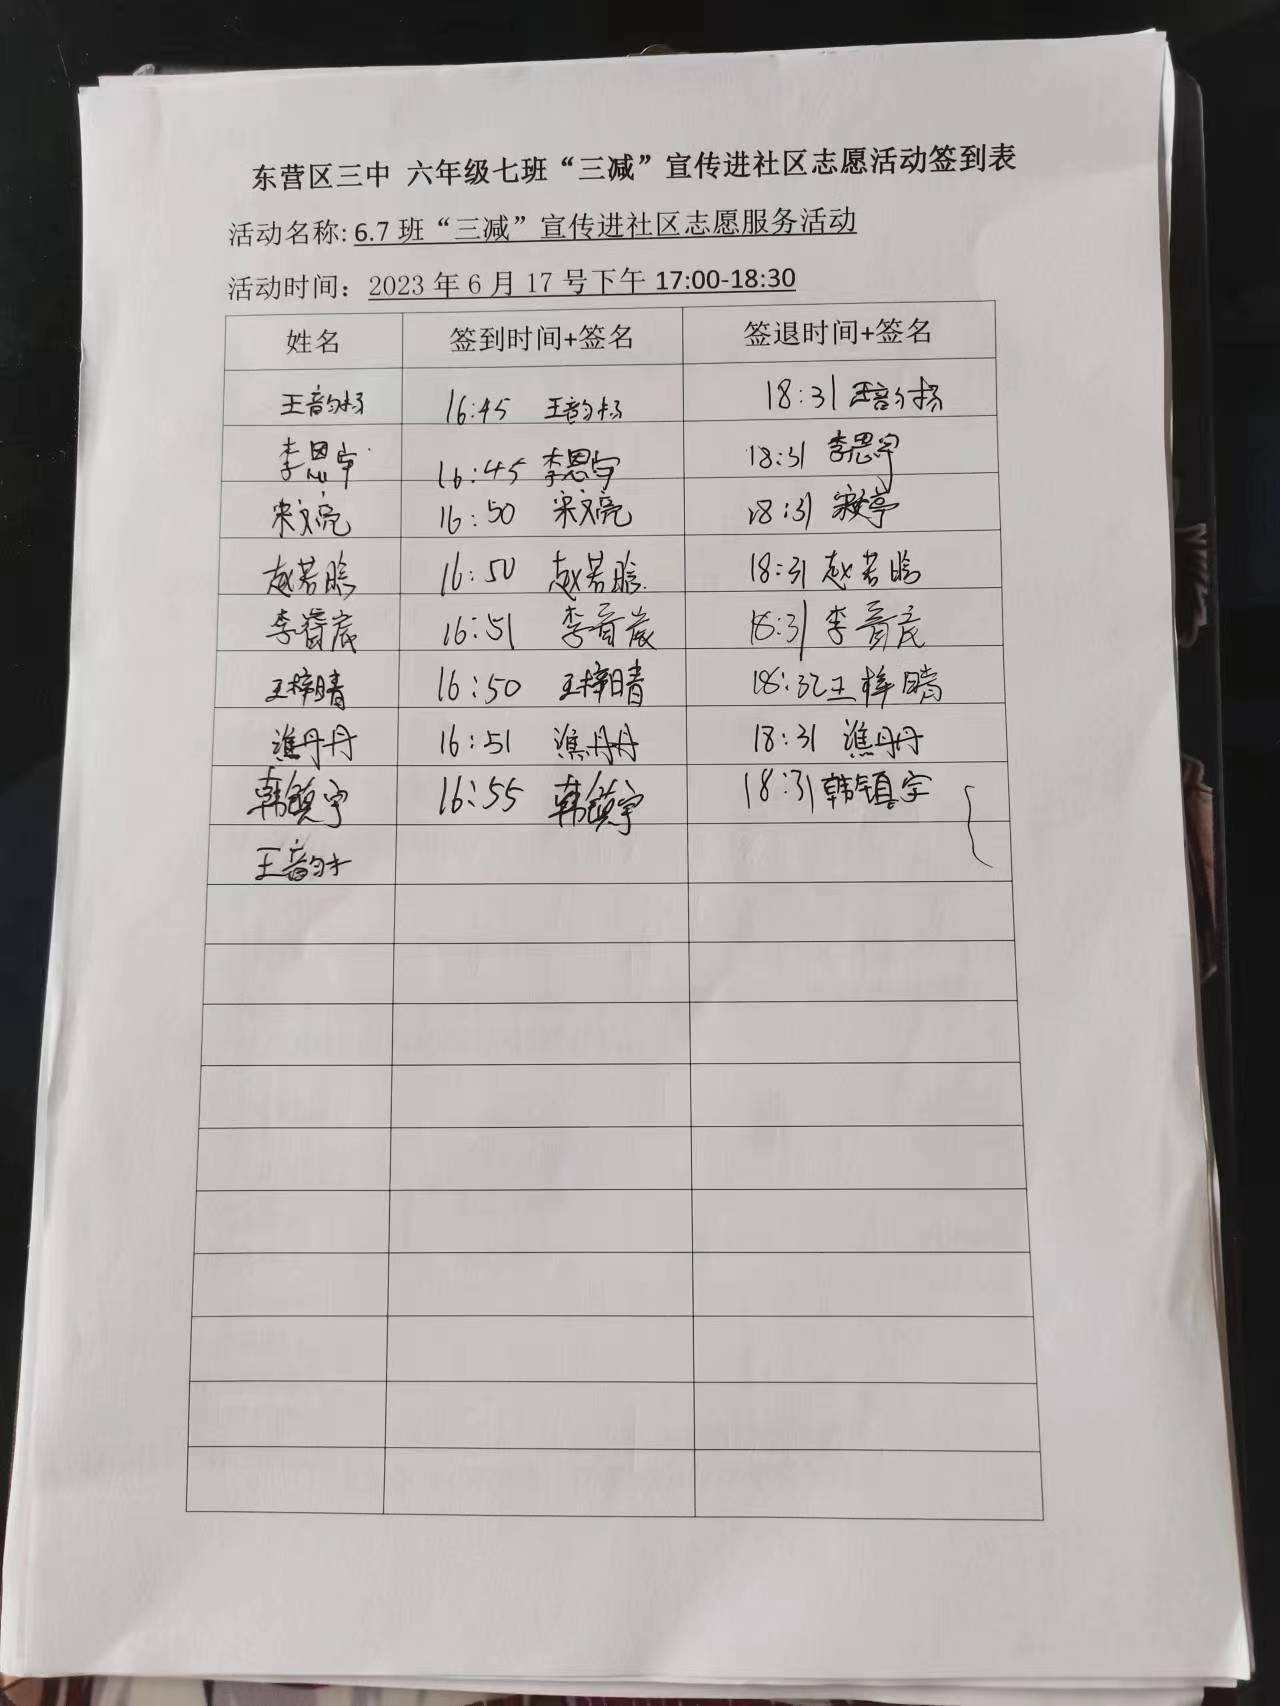 东营区三中 六年级七班“三减”宣传进社区志愿活动签到表
活动名称: 6.7 班“三减”宣传进社区志愿服务活动
活动时间: 2023 年 6 月 17 号下午 17:00-18:30
姓名 签到时间+签名 签退时间+签名
王韵杨 16:45 王韵杨 18:31 王韵杨
李思宇 16:45 李思宇 18:31 李思宇
宋文亮 16:50 宋文亮 18:31
赵若晗 16:50 赵若晗 18:31 赵若晗
李 16:51 李 18:31 李
王梓晴 16:50 王梓晴 王梓晴
丹丹 16:51 丹丹 18:31 丹丹
韩镇宇 16:55 韩镇宇 18:31 韩镇宇
王韵